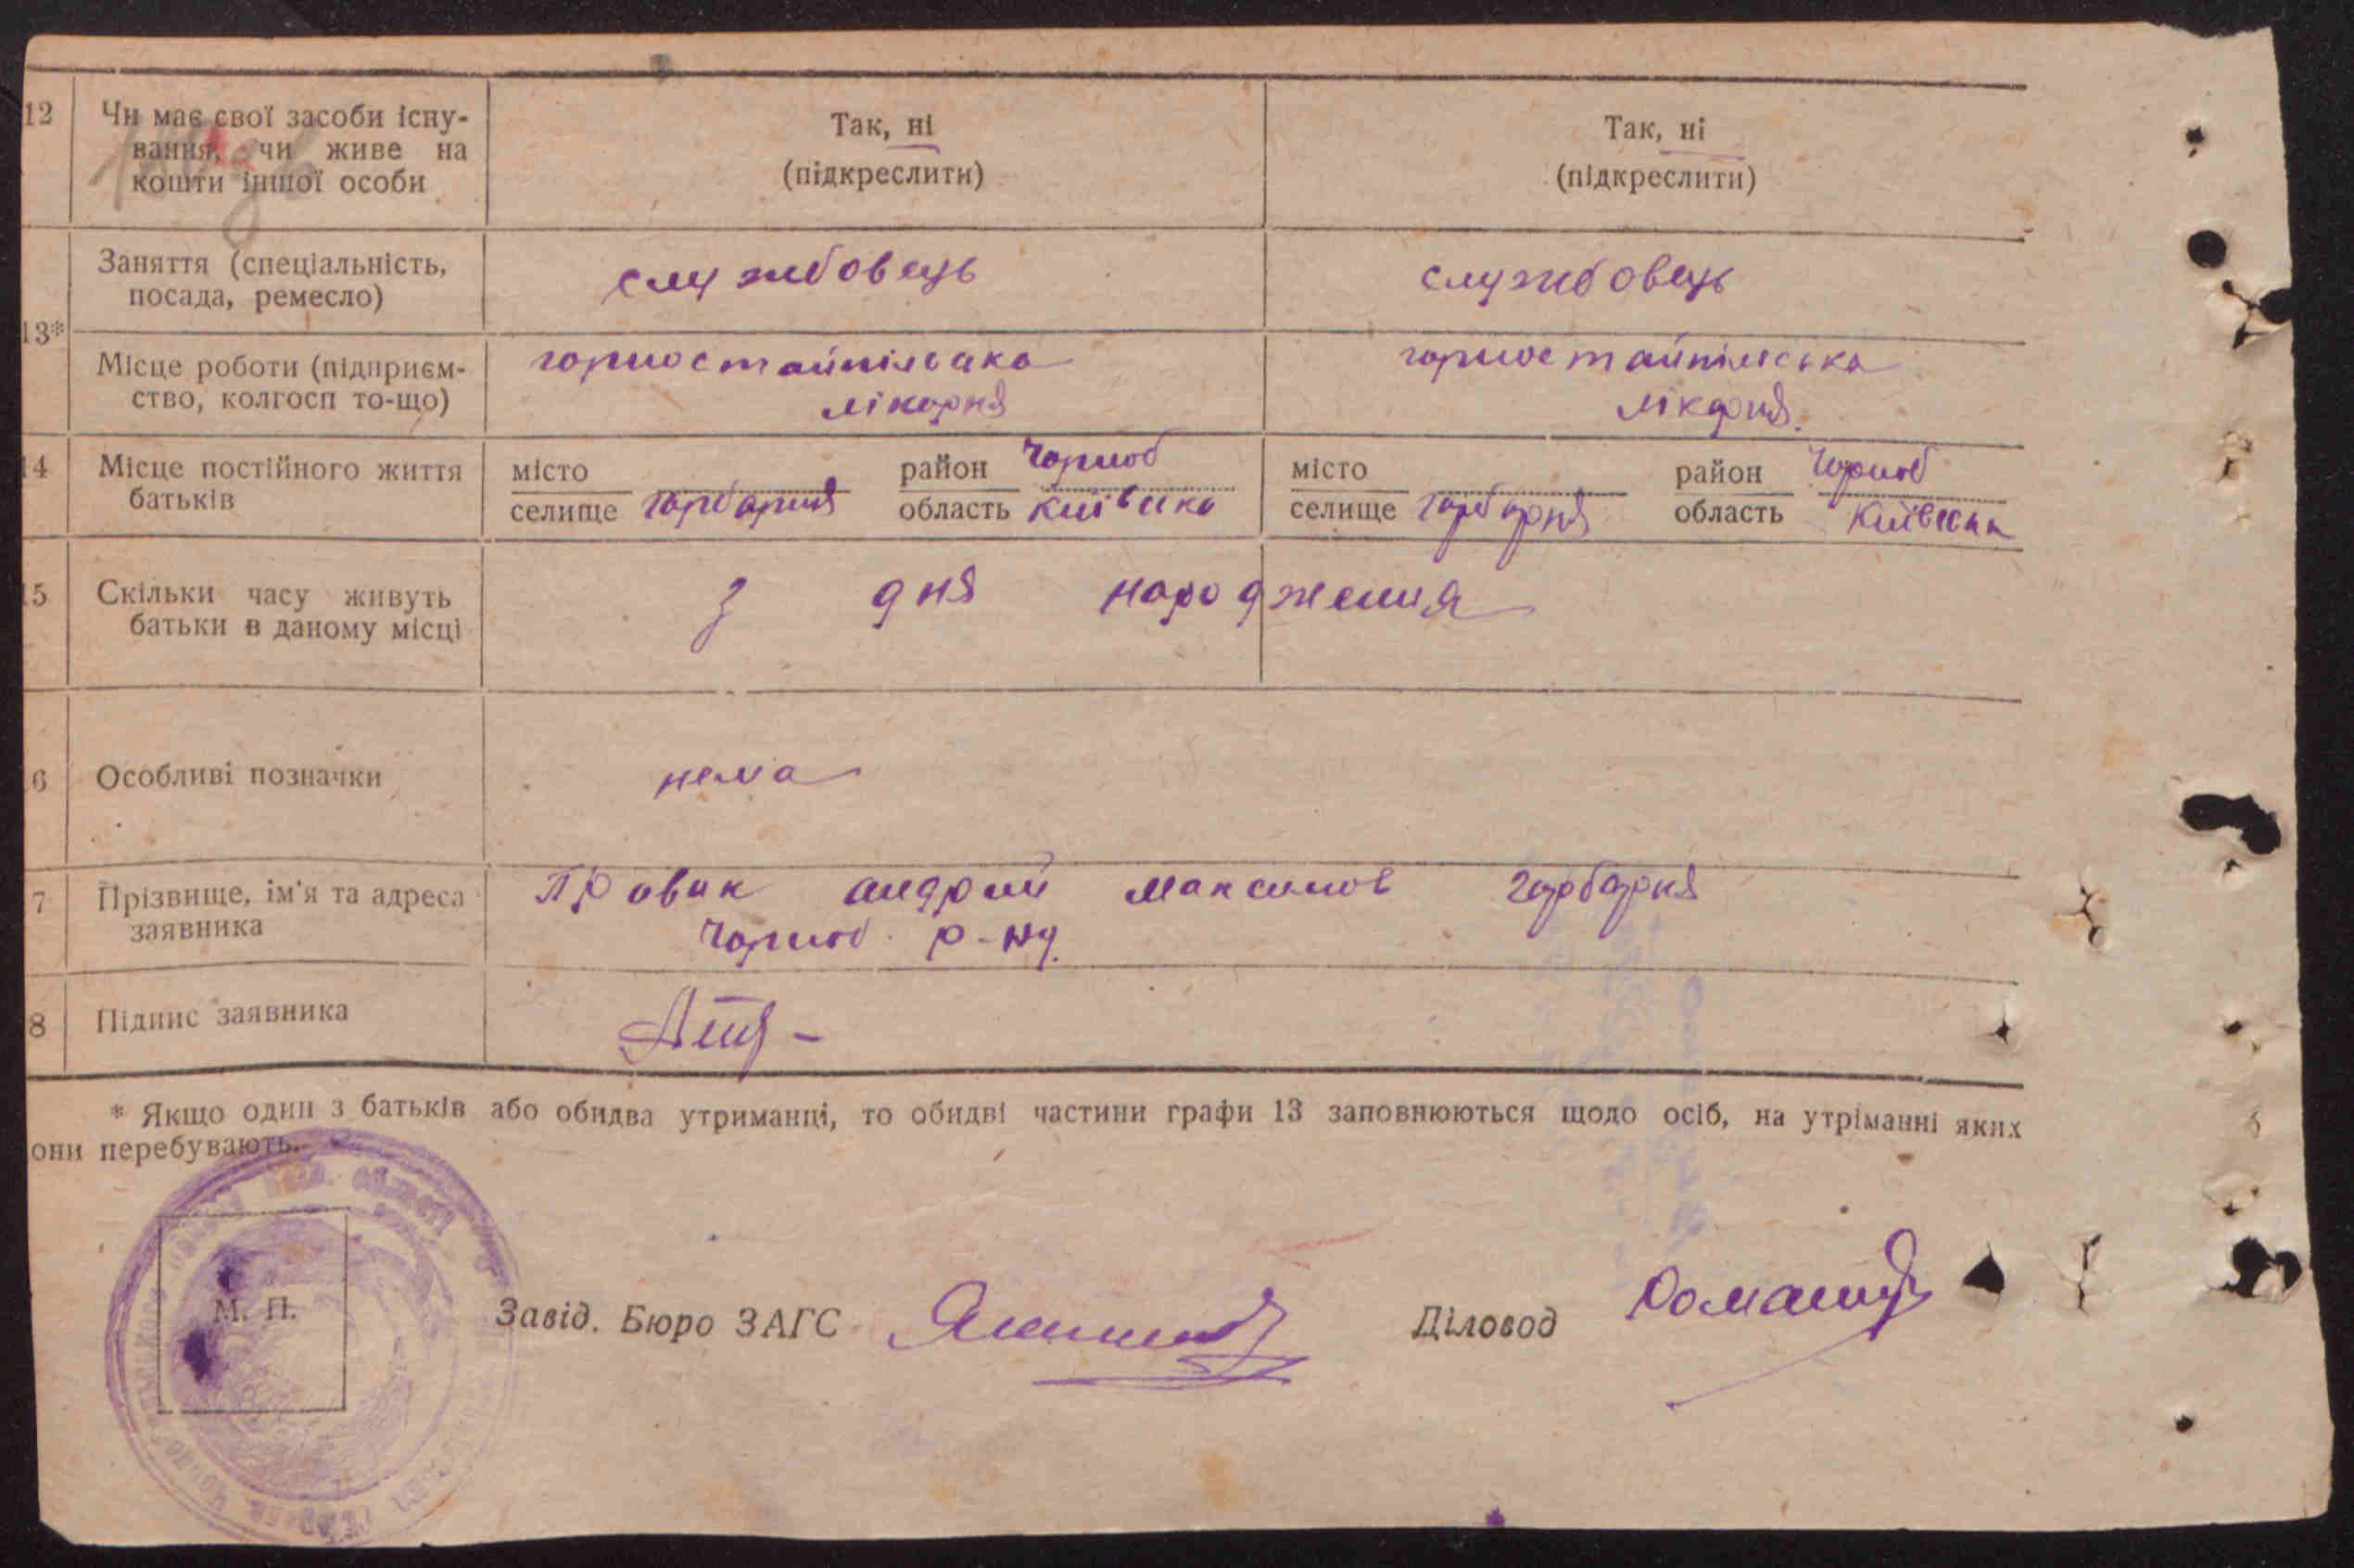 12 Чи має свої засоби існу- Так, ні Так, ні
вання, чи живе на
кошти іншої особи (підкреслити) (підкреслити)
Заняття (спеціальність, службовець службовець
посада, ремесло)
13*
Місце роботи (підприєм- горностайпільська горностайпільська
ство, колгосп то-що) лікарня лікарня.
14 Місце постійного життя місто район Чорноб місто район Чорноб
батьків селище Гарбарня область Київська селище Гарбарня область Київська
15 Скільки часу живуть з дня народження
батьки в даному місці
6 Особливі позначки нема
7 Прізвище, ім'я та адреса андрій максимов Гарбарня
заявника Чорноб. р-ну.
8 Підпис заявника
* Якщо один з батьків або обидва утриманці, то обидві частини графи 13 заповнюються щодо осіб, на утріманні яких
они перебувають.
М. П.
Завід. Бюро ЗАГС Діловод